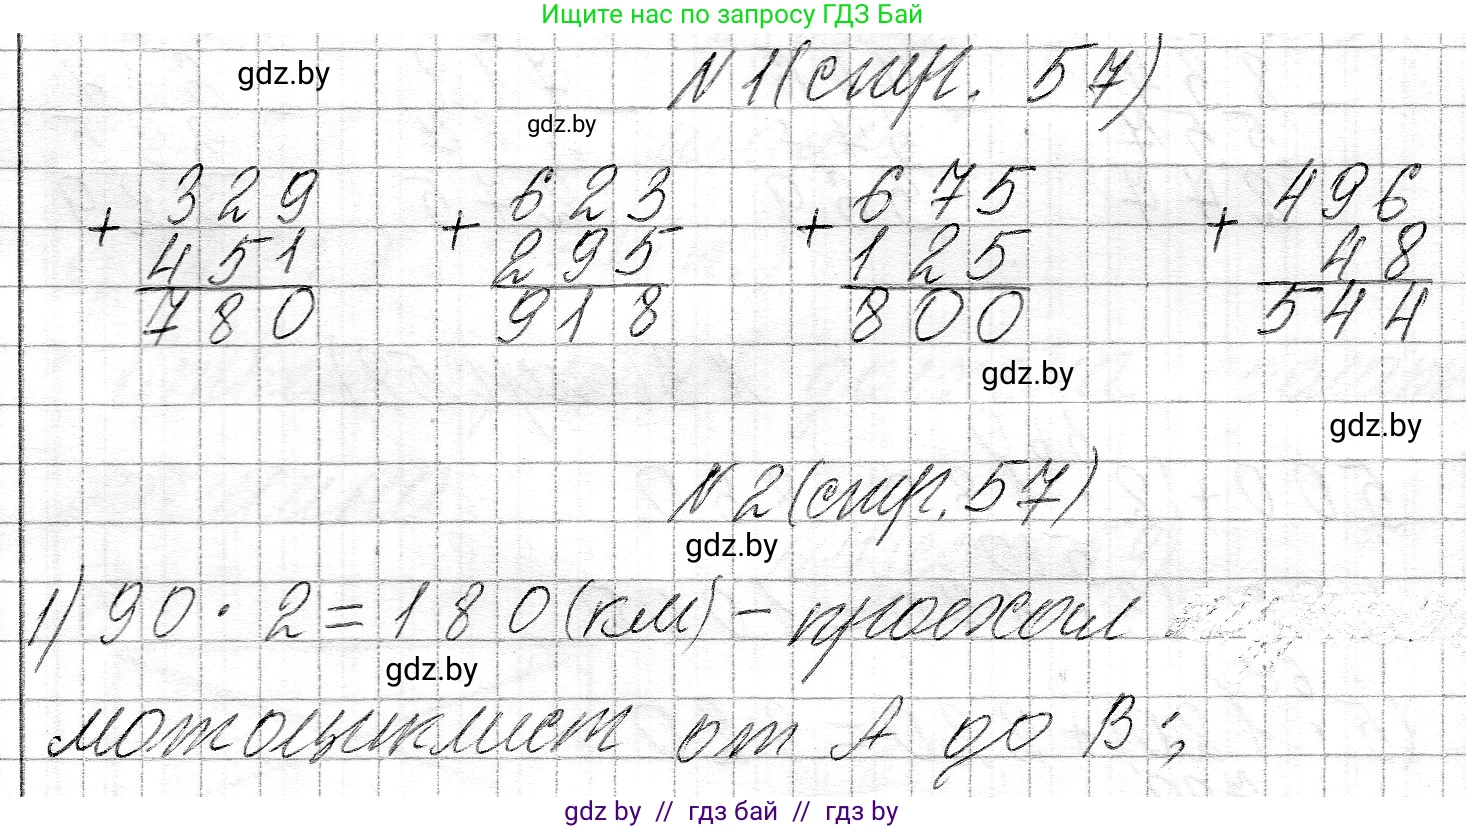 Ищите нас по запросу ГДЗ Бай
gdz.by
N 1 (стр. 57)
gdz.by
+ 329 + 623 + 675 + 496
451 295 125 48
780 918 800 544
gdz.by
gdz.by
N 2 (стр. 57)
gdz.by
1) 90 · 2 = 180 (км) – проехал
gdz.by
мотоциклист от А до В;
gdz by // гдз бай // гдз by